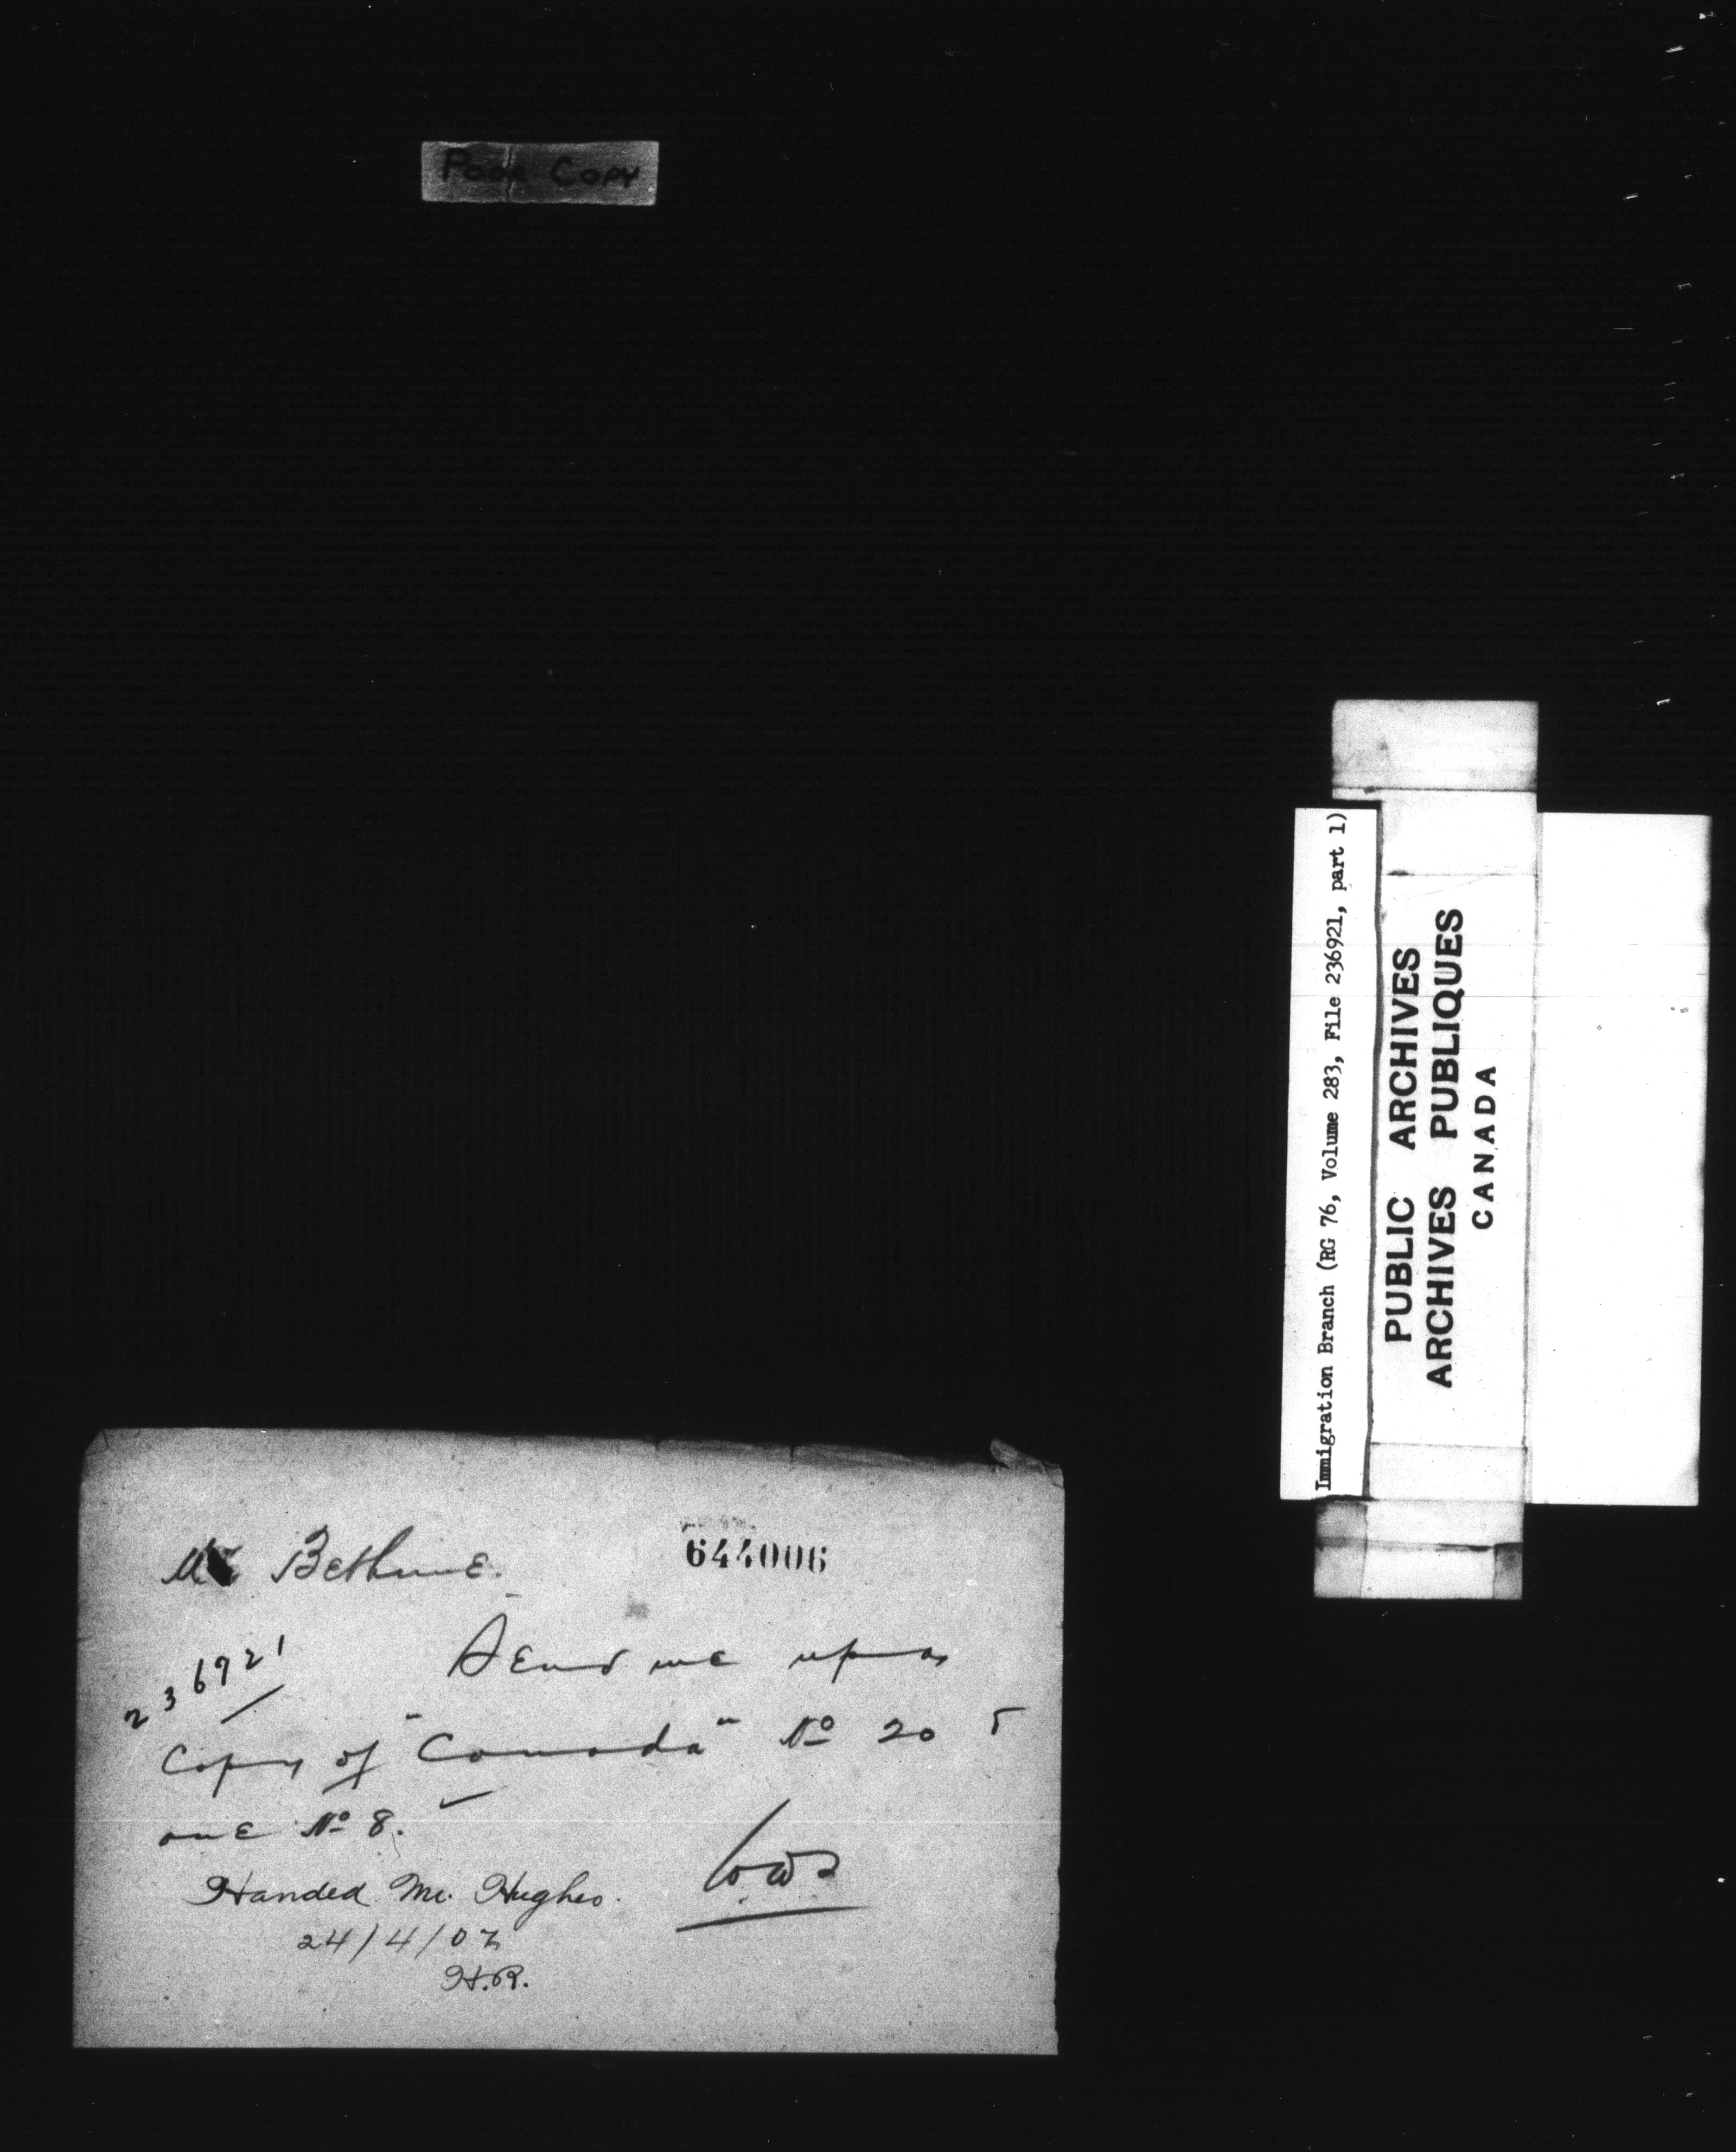 Poor Copy
Immigration Branch (RG 76, Volume 283, File 236921, part 1)
PUBLIC ARCHIVES
ARCHIVES PUBLIQUES
CANADA
644006
Mr Bethune.
236921
Send me up a
Copy of "Canada" No 20
one No 8.
Handed Mr. Hughes.
24/4/07
H.R.